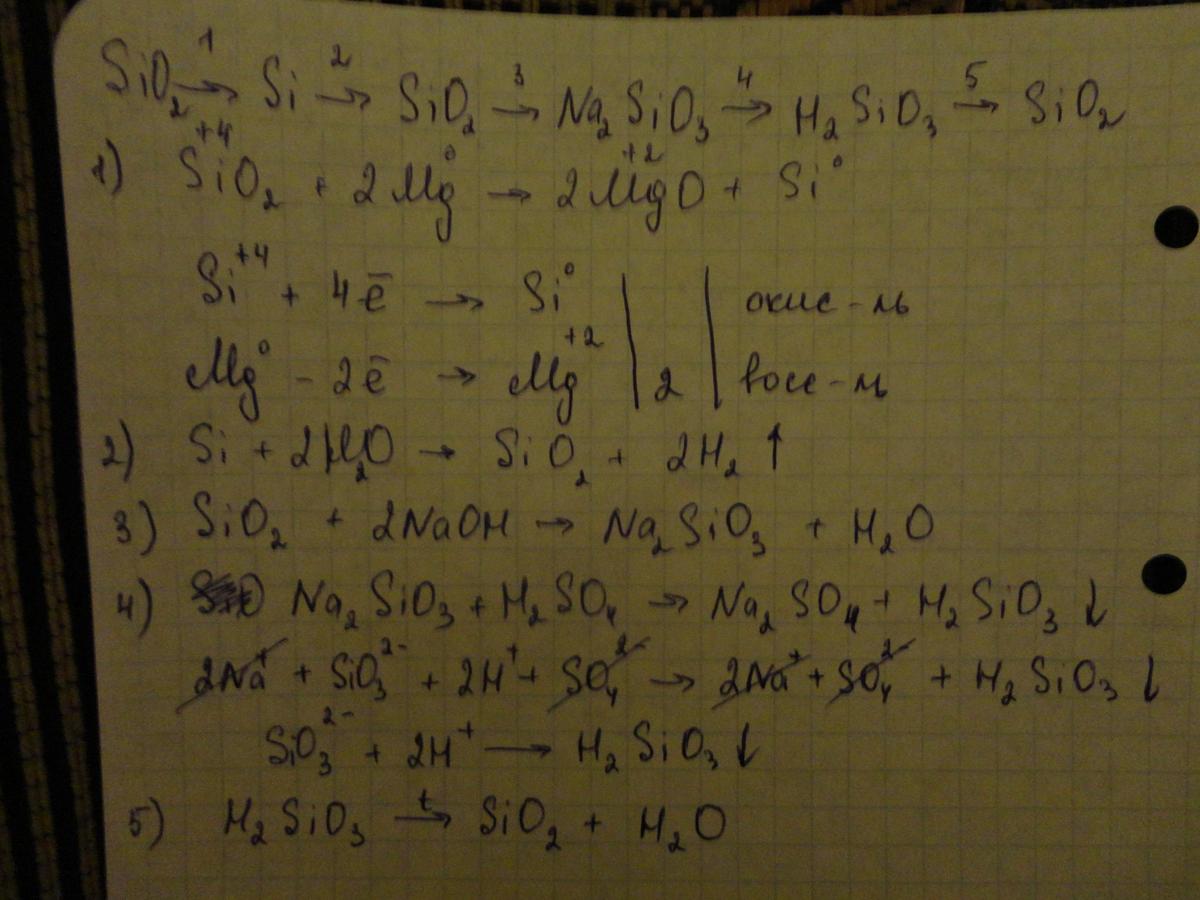 SiO₂ →¹ Si →² SiO₂ →³ Na₂SiO₃ →⁴ H₂SiO₃ →⁵ SiO₂
1) Si⁺⁴O₂ + 2Mg⁰ → 2Mg⁺²O + Si⁰
Si⁺⁴ + 4ē → Si⁰ | | окис-ль
Mg⁰ - 2ē → Mg⁺² | 2 | восс-ль
2) Si + 2H₂O → SiO₂ + 2H₂ ↑
3) SiO₂ + 2NaOH → Na₂SiO₃ + H₂O
4) Na₂SiO₃ + H₂SO₄ → Na₂SO₄ + H₂SiO₃ ↓
2Na⁺ + SiO₃²⁻ + 2H⁺ + SO₄²⁻ → 2Na⁺ + SO₄²⁻ + H₂SiO₃ ↓
SiO₃²⁻ + 2H⁺ → H₂SiO₃ ↓
5) H₂SiO₃ →ᵗ SiO₂ + H₂O